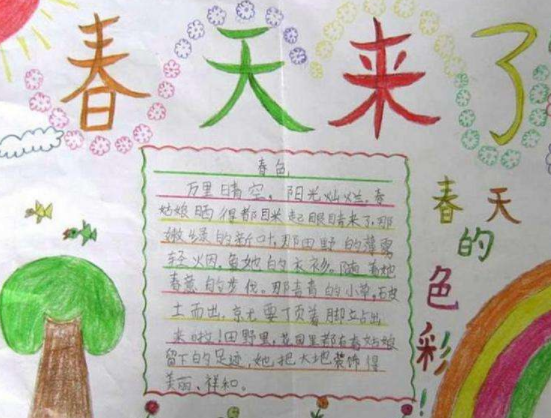 春天来了
春色
万里晴空,阳光灿烂,春
姑娘晒得都眯起眼睛来了,那
嫩绿的新叶,那田野的薄雾
轻烟,是她的衣衫。随着她
春燕的步伐。那青青的小草,破
土而出,京元要丁页着脚立占出
来啦!田野里,花园里都有春姑娘
留下的足迹,她把大地装饰得
美丽、祥和。
春天
的
色
彩!